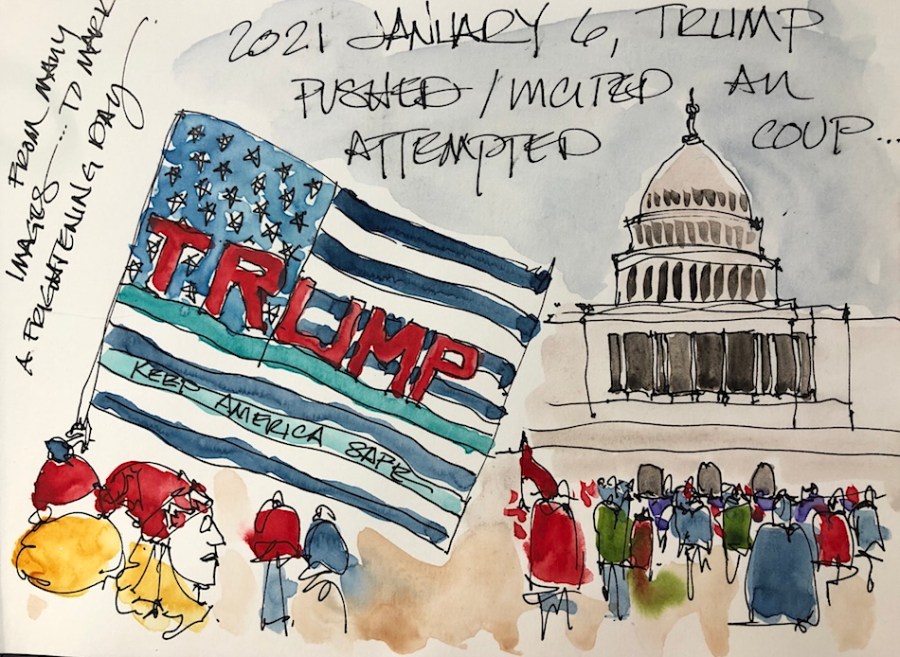 2021 JANUARY 6, TRUMP
PUSHED / INCITED AN
ATTEMPTED COUP...
FROM MANY
IMAGES... TO MARK
A FRIGHTENING DAY...
TRUMP
KEEP AMERICA SAFE